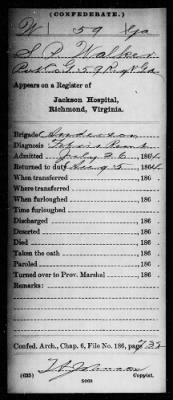 (CONFEDERATE.)
W 59 Ga
S P Walker
Pvt Co G. 59 Reg't Ga
Appears on a Register of
Jackson Hospital,
Richmond, Virginia.
Brigade Anderson
Diagnosis Febris Remt
Admitted July 26, 1864
Returned to duty Aug 5, 1864
When transferred , 186 .
Where transferred
When furloughed , 186 .
Time furloughed
Discharged , 186 .
Deserted , 186 .
Died , 186 .
Taken the oath , 186 .
Paroled , 186 .
Turned over to Prov. Marshal , 186 .
Remarks:
Confed. Arch., Chap. 6, File No. 186, page
Johnson
(635) Copyist.